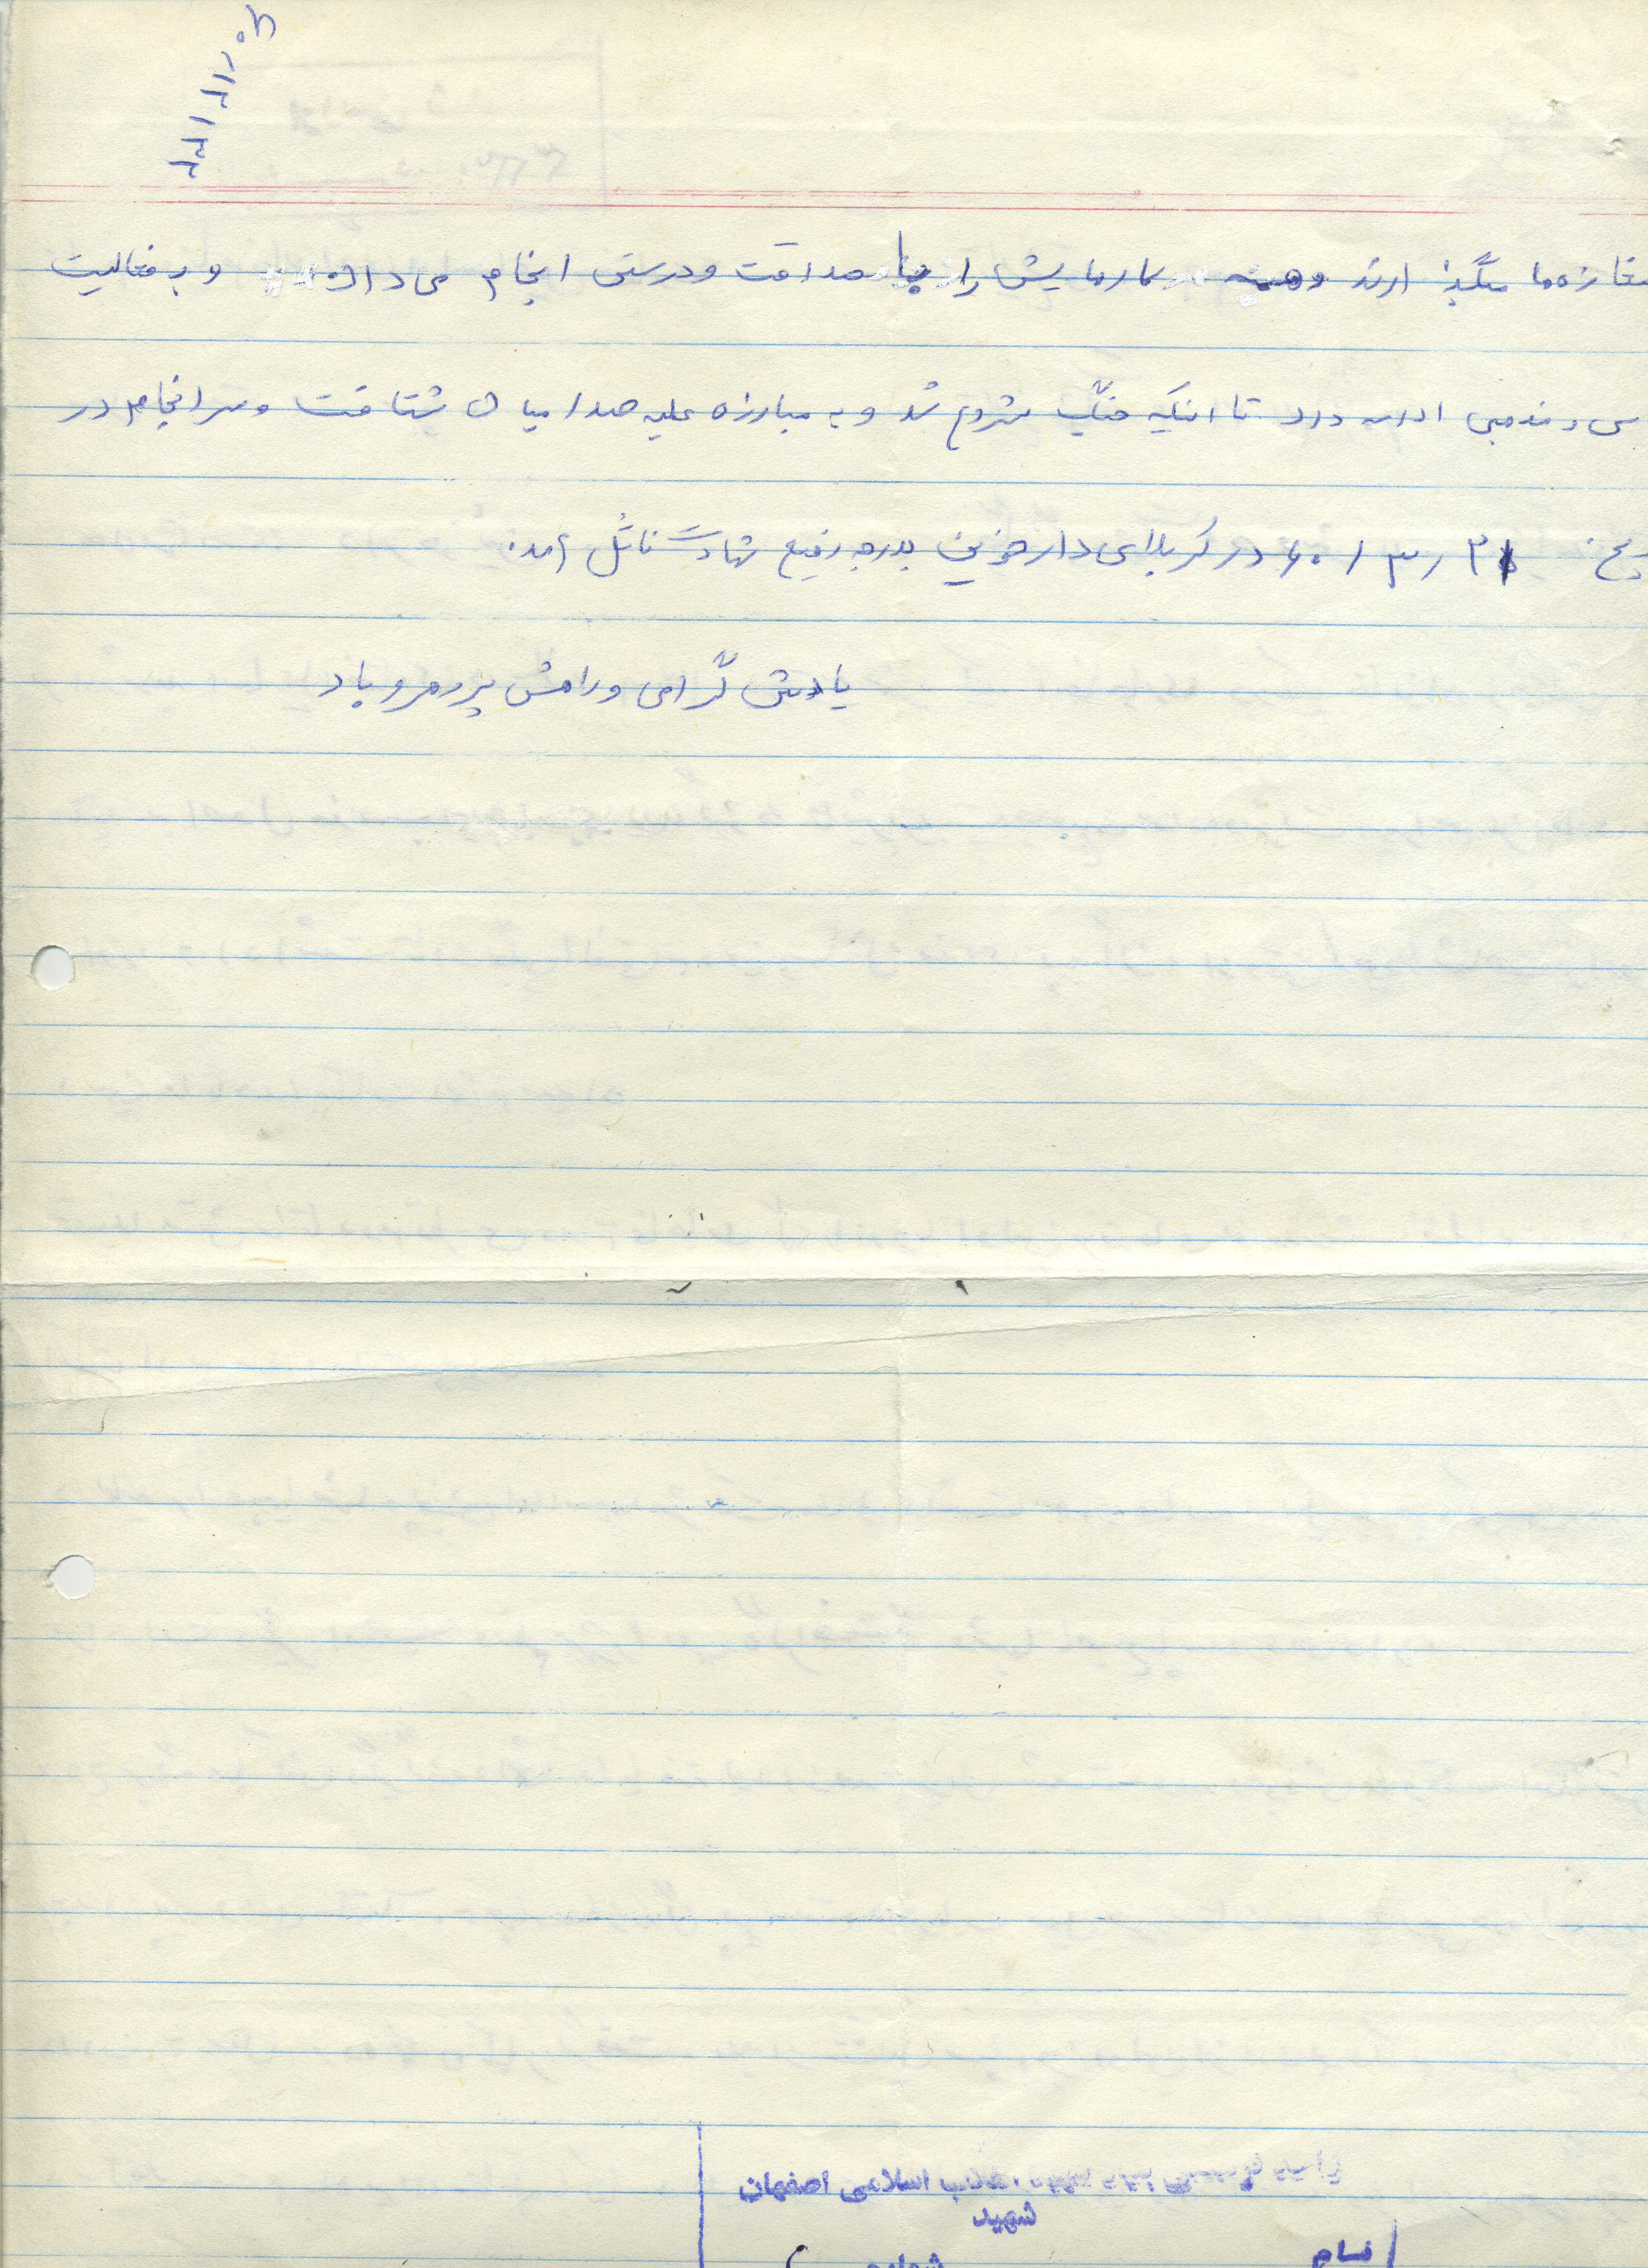 مغازه ما میگذارند و همه کارهایش را با صداقت و درستی انجام می داد و به فعالیت
سی و مذهبی ادامه داد تا اینکه جنگ شروع شد و به مبارزه علیه صدامیان شتافت و سرانجام در
یخ ۶۰/۳/۳۱ در کربلای دارخوین بدرجه رفیع شهادت نائل آمد.
یادش گرامی و راهش پررهرو باد
انقلاب اسلامی اصفهان
شهید
نام
شماره